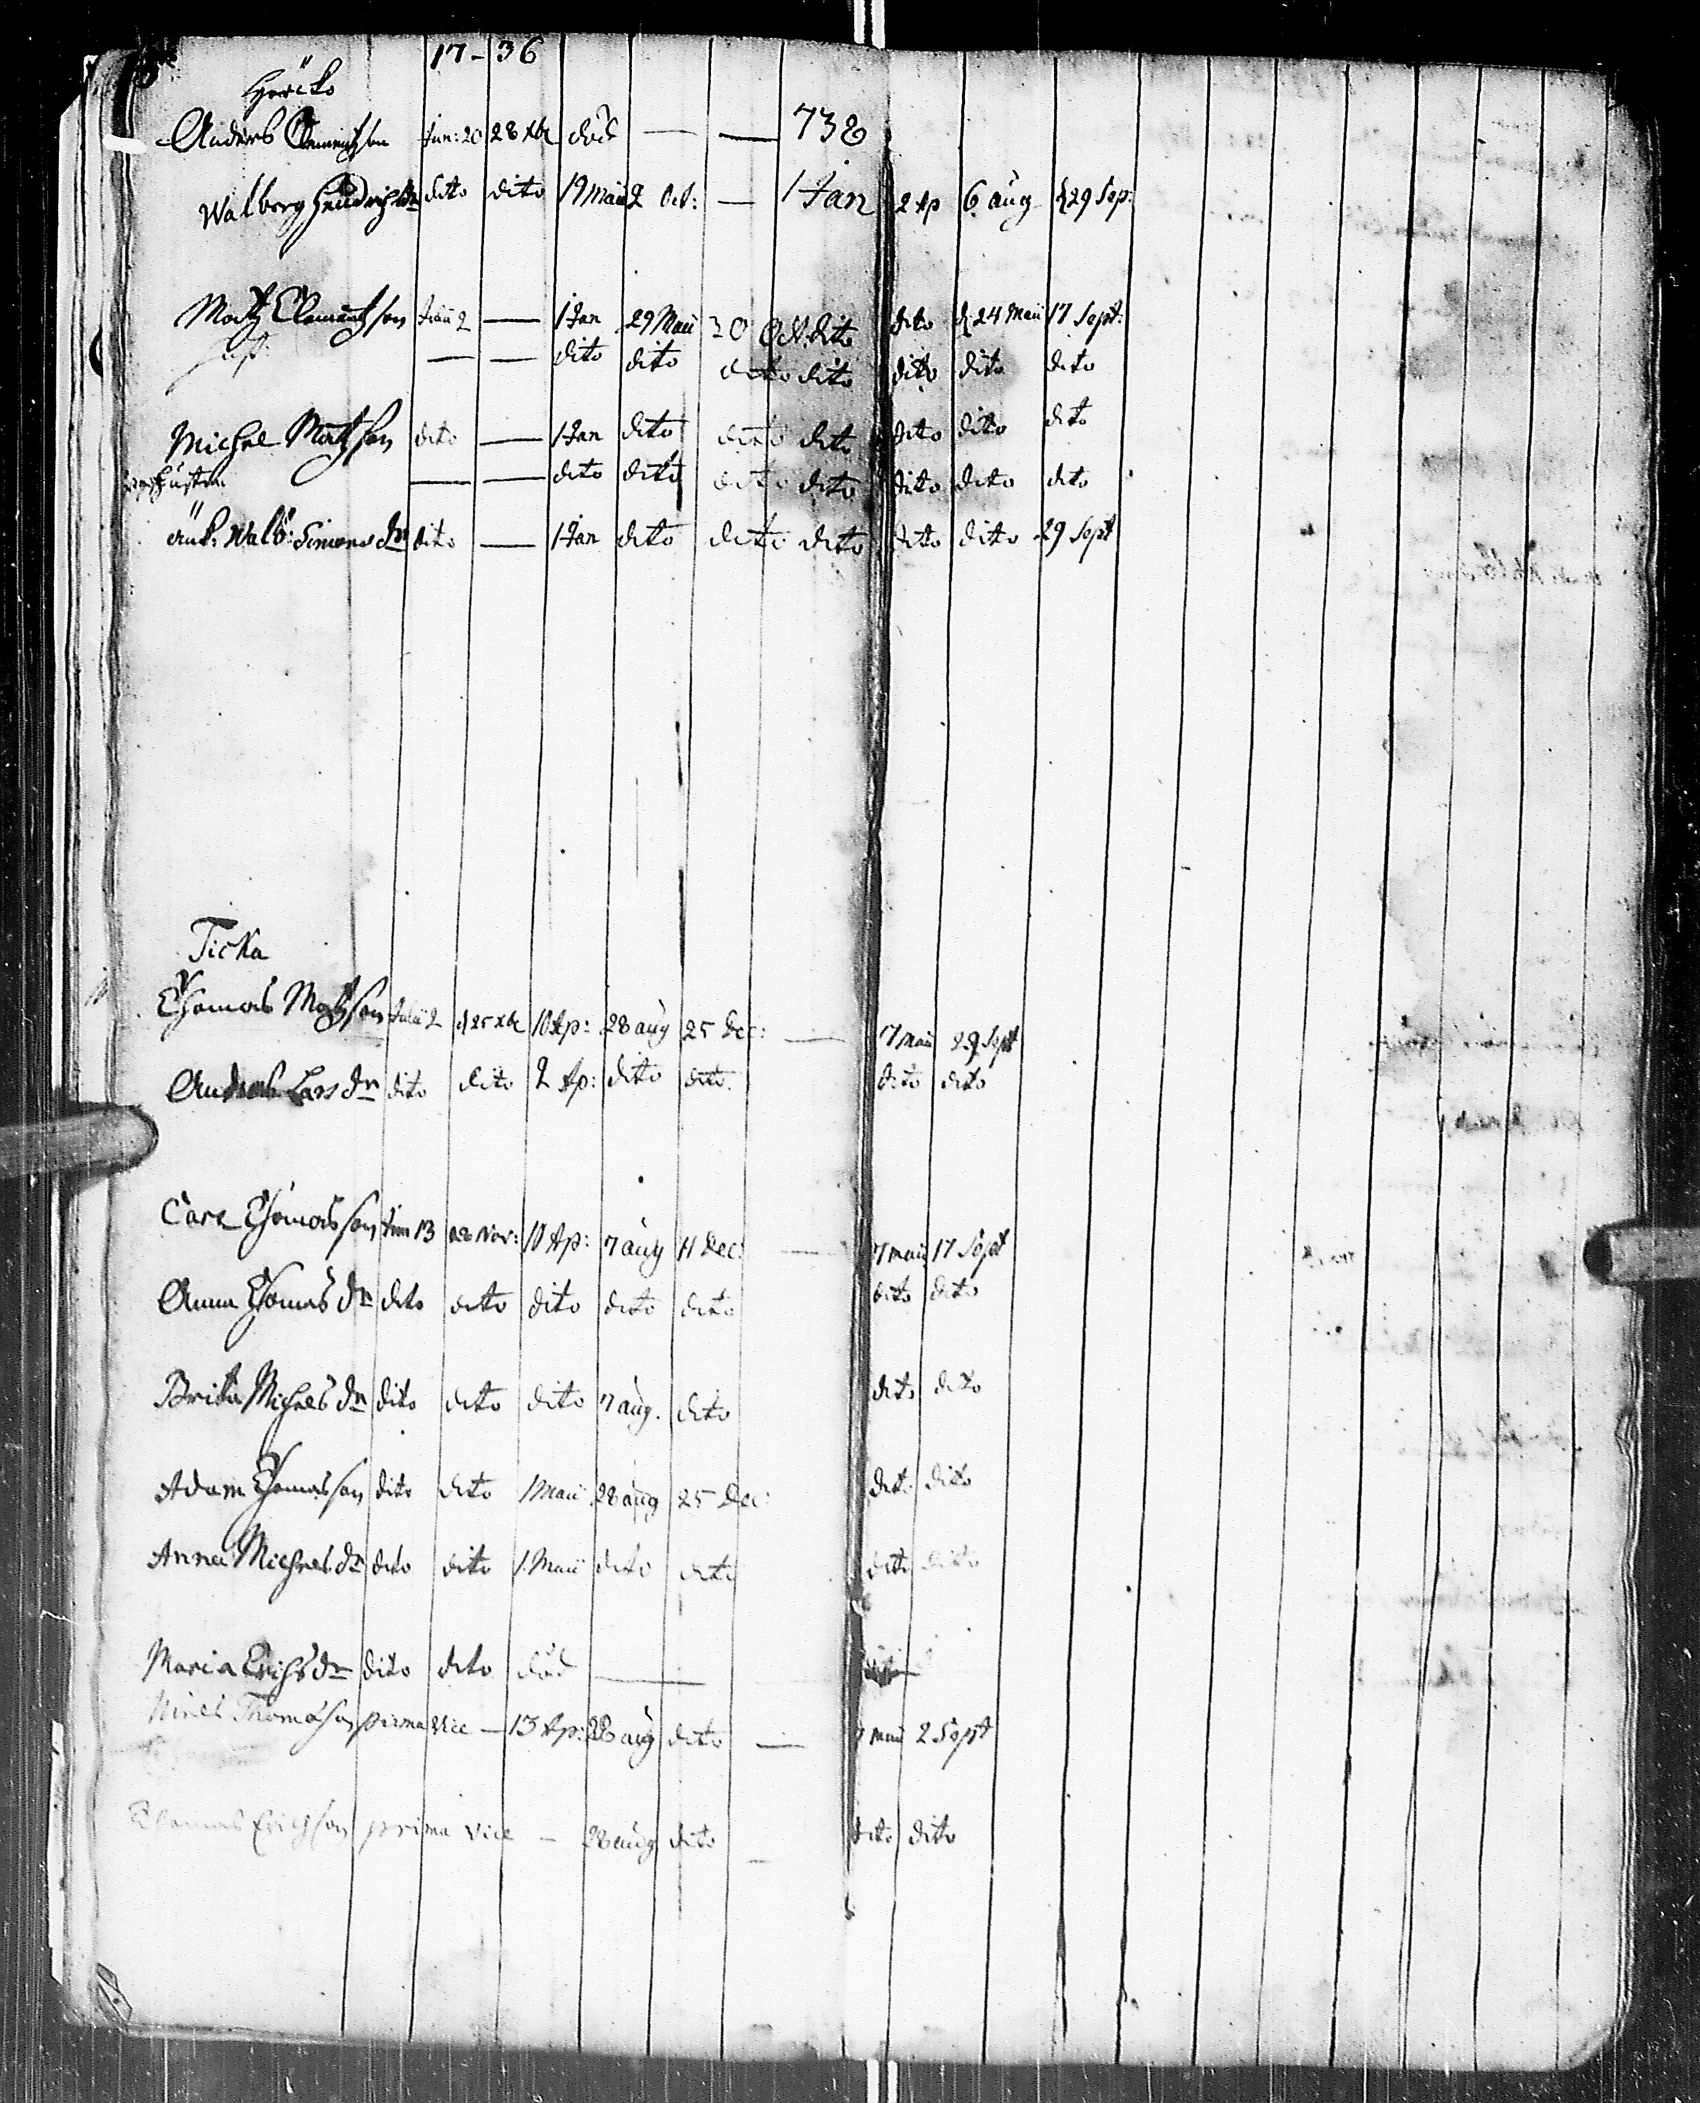 17-36
Höcko
Anders Clemetson Jun: 20 28 xbr död — — 738
Walborg Hendrichs dr dito dito 19 Maii 2 Oct: — 1 Jan 2 Ap 6 aug d 29 Sep:
Matz Clemetson Junii 2 — 1 Jan 29 Maii 20 Oct. dito dito d 24 Maii 17 Sept:
hust: — — dito dito dito dito dito dito dito
Michel Matzson dito — 1 Jan dito dito dito dito dito dito
hustrn — — dito dito dito dito dito dito dito
änk: Walb: Simons dr dito — 1 Jan dito dito dito dito dito 29 Sept
Ticka
Thomas Matzson Julii 2 d 25 xbr 10 Ap: 28 aug 25 Dec: — 7 maii 29 Sept
Lars dr dito dito 2 Ap: dito dito. dito dito
Carl Thomasson Jun 13 Nov: 10 Ap: 7 aug 11 Dec: — 7 maii 17 Sept
Anna Thomas dr dito dito dito dito dito dito dito
Brita Michels dr dito dito dito 7 aug. dito dito dito
Adam Thomasson dito dito 1 Maii 28 aug 25 Dec: dito dito
Anna Michels dr dito dito 1. Maii dito dito dito dito
Maria Erichs dr dito dito död —
Thomasson prima vice — 13 Ap: 28 aug dito — 7 maii 2 Sept
Thomas Erichson prima vice — 28 aug dito — dito dito